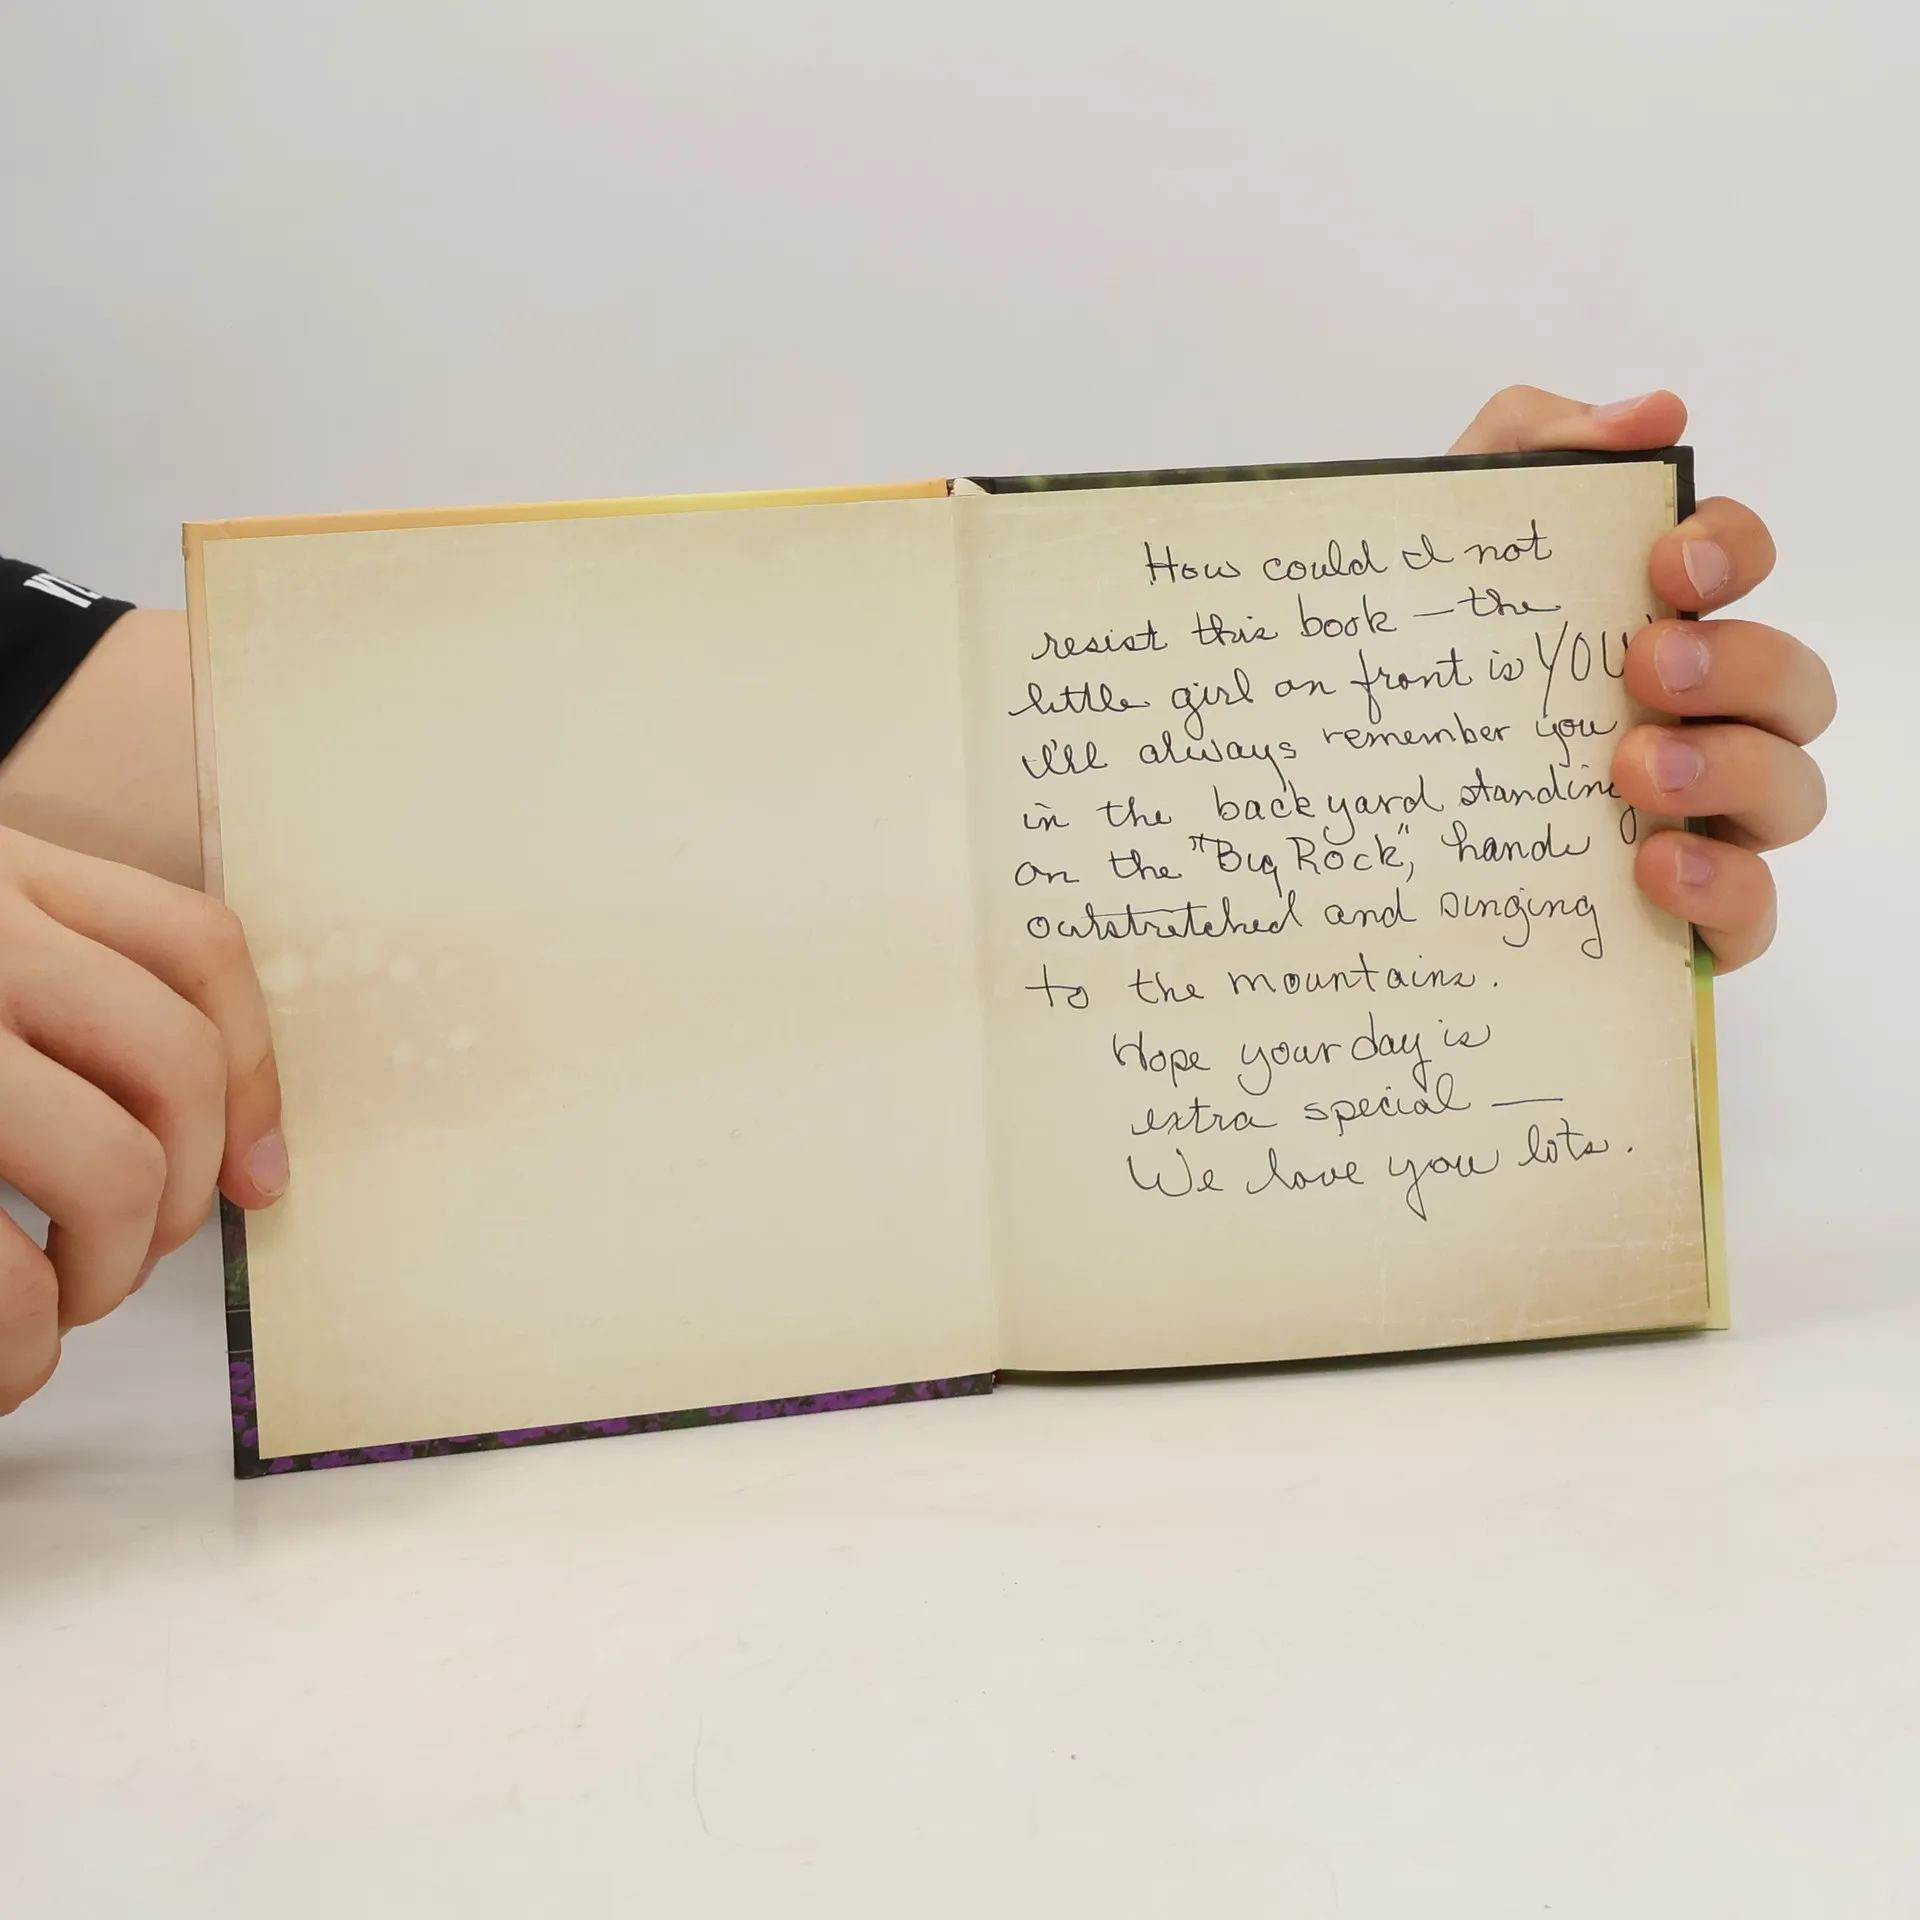 How could I not
resist this book — the
little girl on front is YOU
I'll always remember you
in the backyard standing
on the "Big Rock", hands
outstretched and singing
to the mountains.
Hope your day is
extra special —
We love you lots.